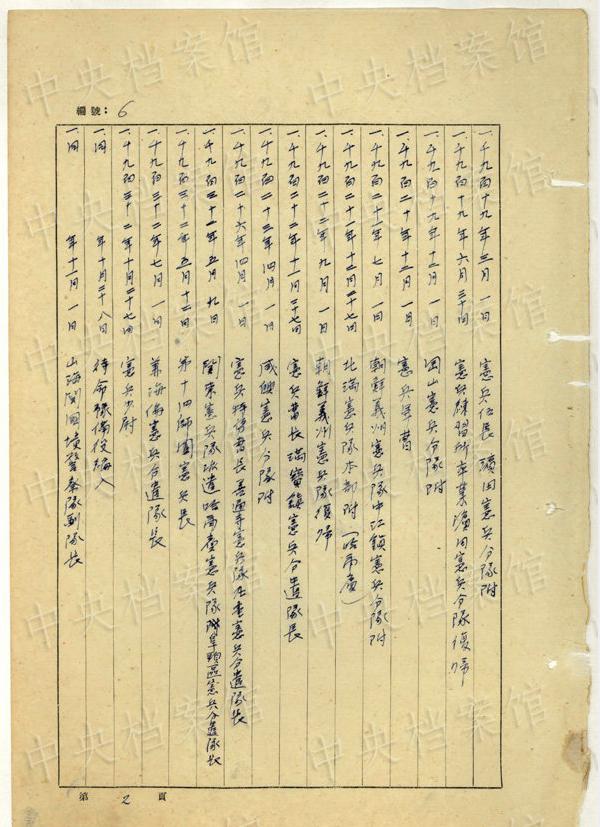 編號：6
一、一千九百十九年三月一日 憲兵伍長 濱田憲兵分隊附
一、一千九百十九年六月三十日 憲兵練習所卒業濱田憲兵分隊復帰
一、一千九百十九年十二月一日 岡山憲兵分隊附
一、一千九百二十年十二月一日 憲兵軍曹
一、一千九百二十一年七月一日 朝鮮義州憲兵隊中江鎮憲兵分隊附
一、一千九百二十一年十二月二十七日 北満憲兵隊本部附（哈爾賓）
一、一千九百二十二年九月一日 朝鮮義州憲兵隊復帰
一、一千九百二十二年十一月二十七日 憲兵曹長 満 鎮憲兵分遣隊長
一、一千九百二十三年四月一日 咸興憲兵分隊附
一、一千九百二十六年四月一日 憲兵特務曹長 善通寺憲兵隊 憲兵分遣隊長
一、一千九百三十一年五月九日 関東憲兵隊派遣哈爾賓憲兵隊附 憲兵分遣隊長
一、一千九百三十二年五月十二日 第十四師團憲兵長
一、一千九百三十二年七月一日 海倫憲兵分遣隊長
一、一千九百三十二年十月二十七日 憲兵少尉
一、同 年十月二十八日 待命豫備役編入
一、同 年十一月一日 山海関國境警察隊副隊長
第 2 頁
中央档案馆